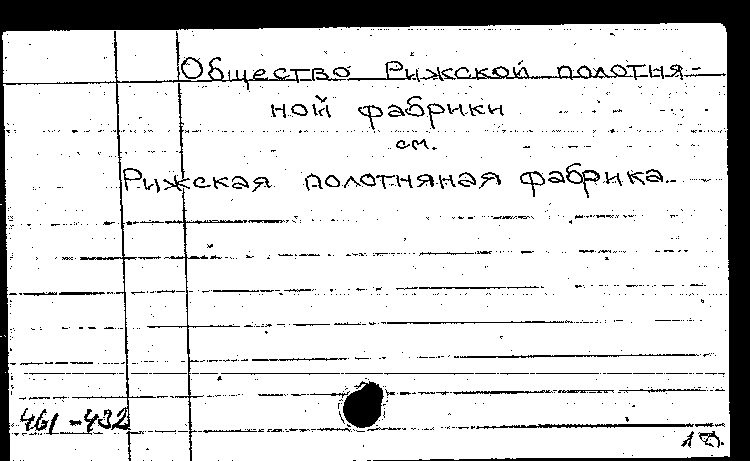 Общество Рижской полотня-
ной фабрики
см.
Рижская полотняная фабрика
461-432